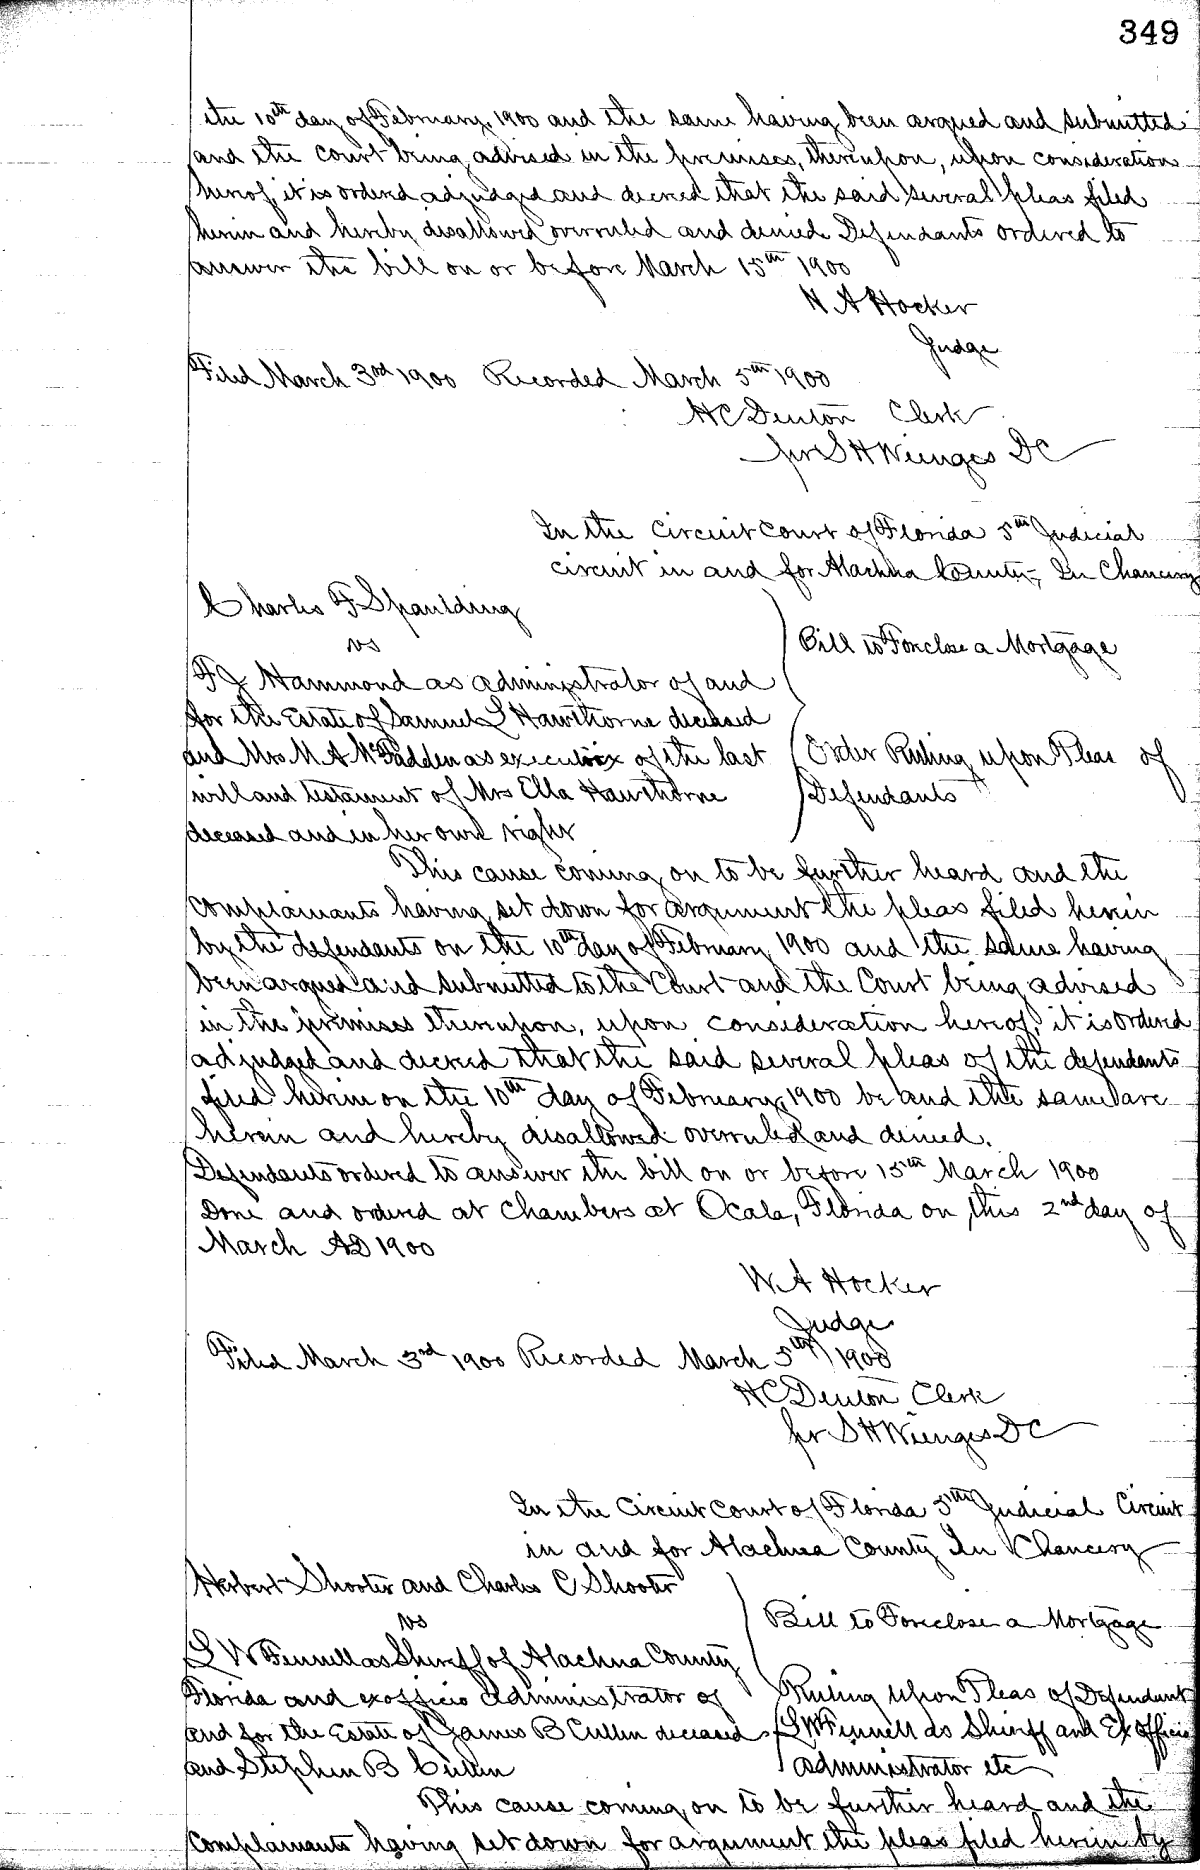 349
the 10th day of February, 1900 and the same having been argued and submitted
and the court being advised in the premises, thereupon, upon consideration
hereof, it is ordered adjudged and decreed that the said several pleas filed
herein and hereby disallowed overruled and denied Defendants ordered to
answer the bill on or before March 15th 1900
W A Hocker
Judge
Filed March 3rd 1900 Recorded March 5th 1900
H C Denton Clerk
per S H Wienges DC
In the Circuit Court of Florida 5th Judicial
circuit in and for Alachua County, In Chancery
Charles F Spaulding
vs
Bill to Foreclose a Mortgage
F J Hammond as administrator of and
for the Estate of Samuel L Hawthorne deceased
and Mrs M A McFadden as executrix of the last
Order Ruling upon Pleas of
will and testament of Mrs Ella Hawthorne
Defendants
deceased and in her own right
This cause coming on to be further heard and the
complainants having set down for argument the pleas filed herein
by the defendants on the 10th day of February 1900 and the same having
been argued and submitted to the Court and the Court being advised
in the premises thereupon, upon consideration hereof, it is ordered
adjudged and decreed that the said several pleas of the defendants
filed herein on the 10th day of February, 1900 be and the same are
herein and hereby disallowed overruled and denied.
Defendants ordered to answer the bill on or before 15th March 1900
Done and ordered at Chambers at Ocala, Florida on this 2nd day of
March AD 1900
W. A Hocker
Judge
Filed March 3rd 1900 Recorded March 5th 1900
H C Denton Clerk
per S H Wienges DC
In the Circuit Court of Florida 5th Judicial Circuit
in and for Alachua County In Chancery
Herbert Shooter and Charles C Shooter
vs
Bill to Foreclose a Mortgage
L W Fennell as Sheriff of Alachua County
Florida and exofficio Administrator of
Ruling upon Pleas of Defendant
and for the Estate of James B Cullen deceased
L W Fennell as Sheriff and Ex Officio
and Stephen B Cullen
administrator etc
This cause coming on to be further heard and the
Complainants having set down for argument the pleas filed herein by